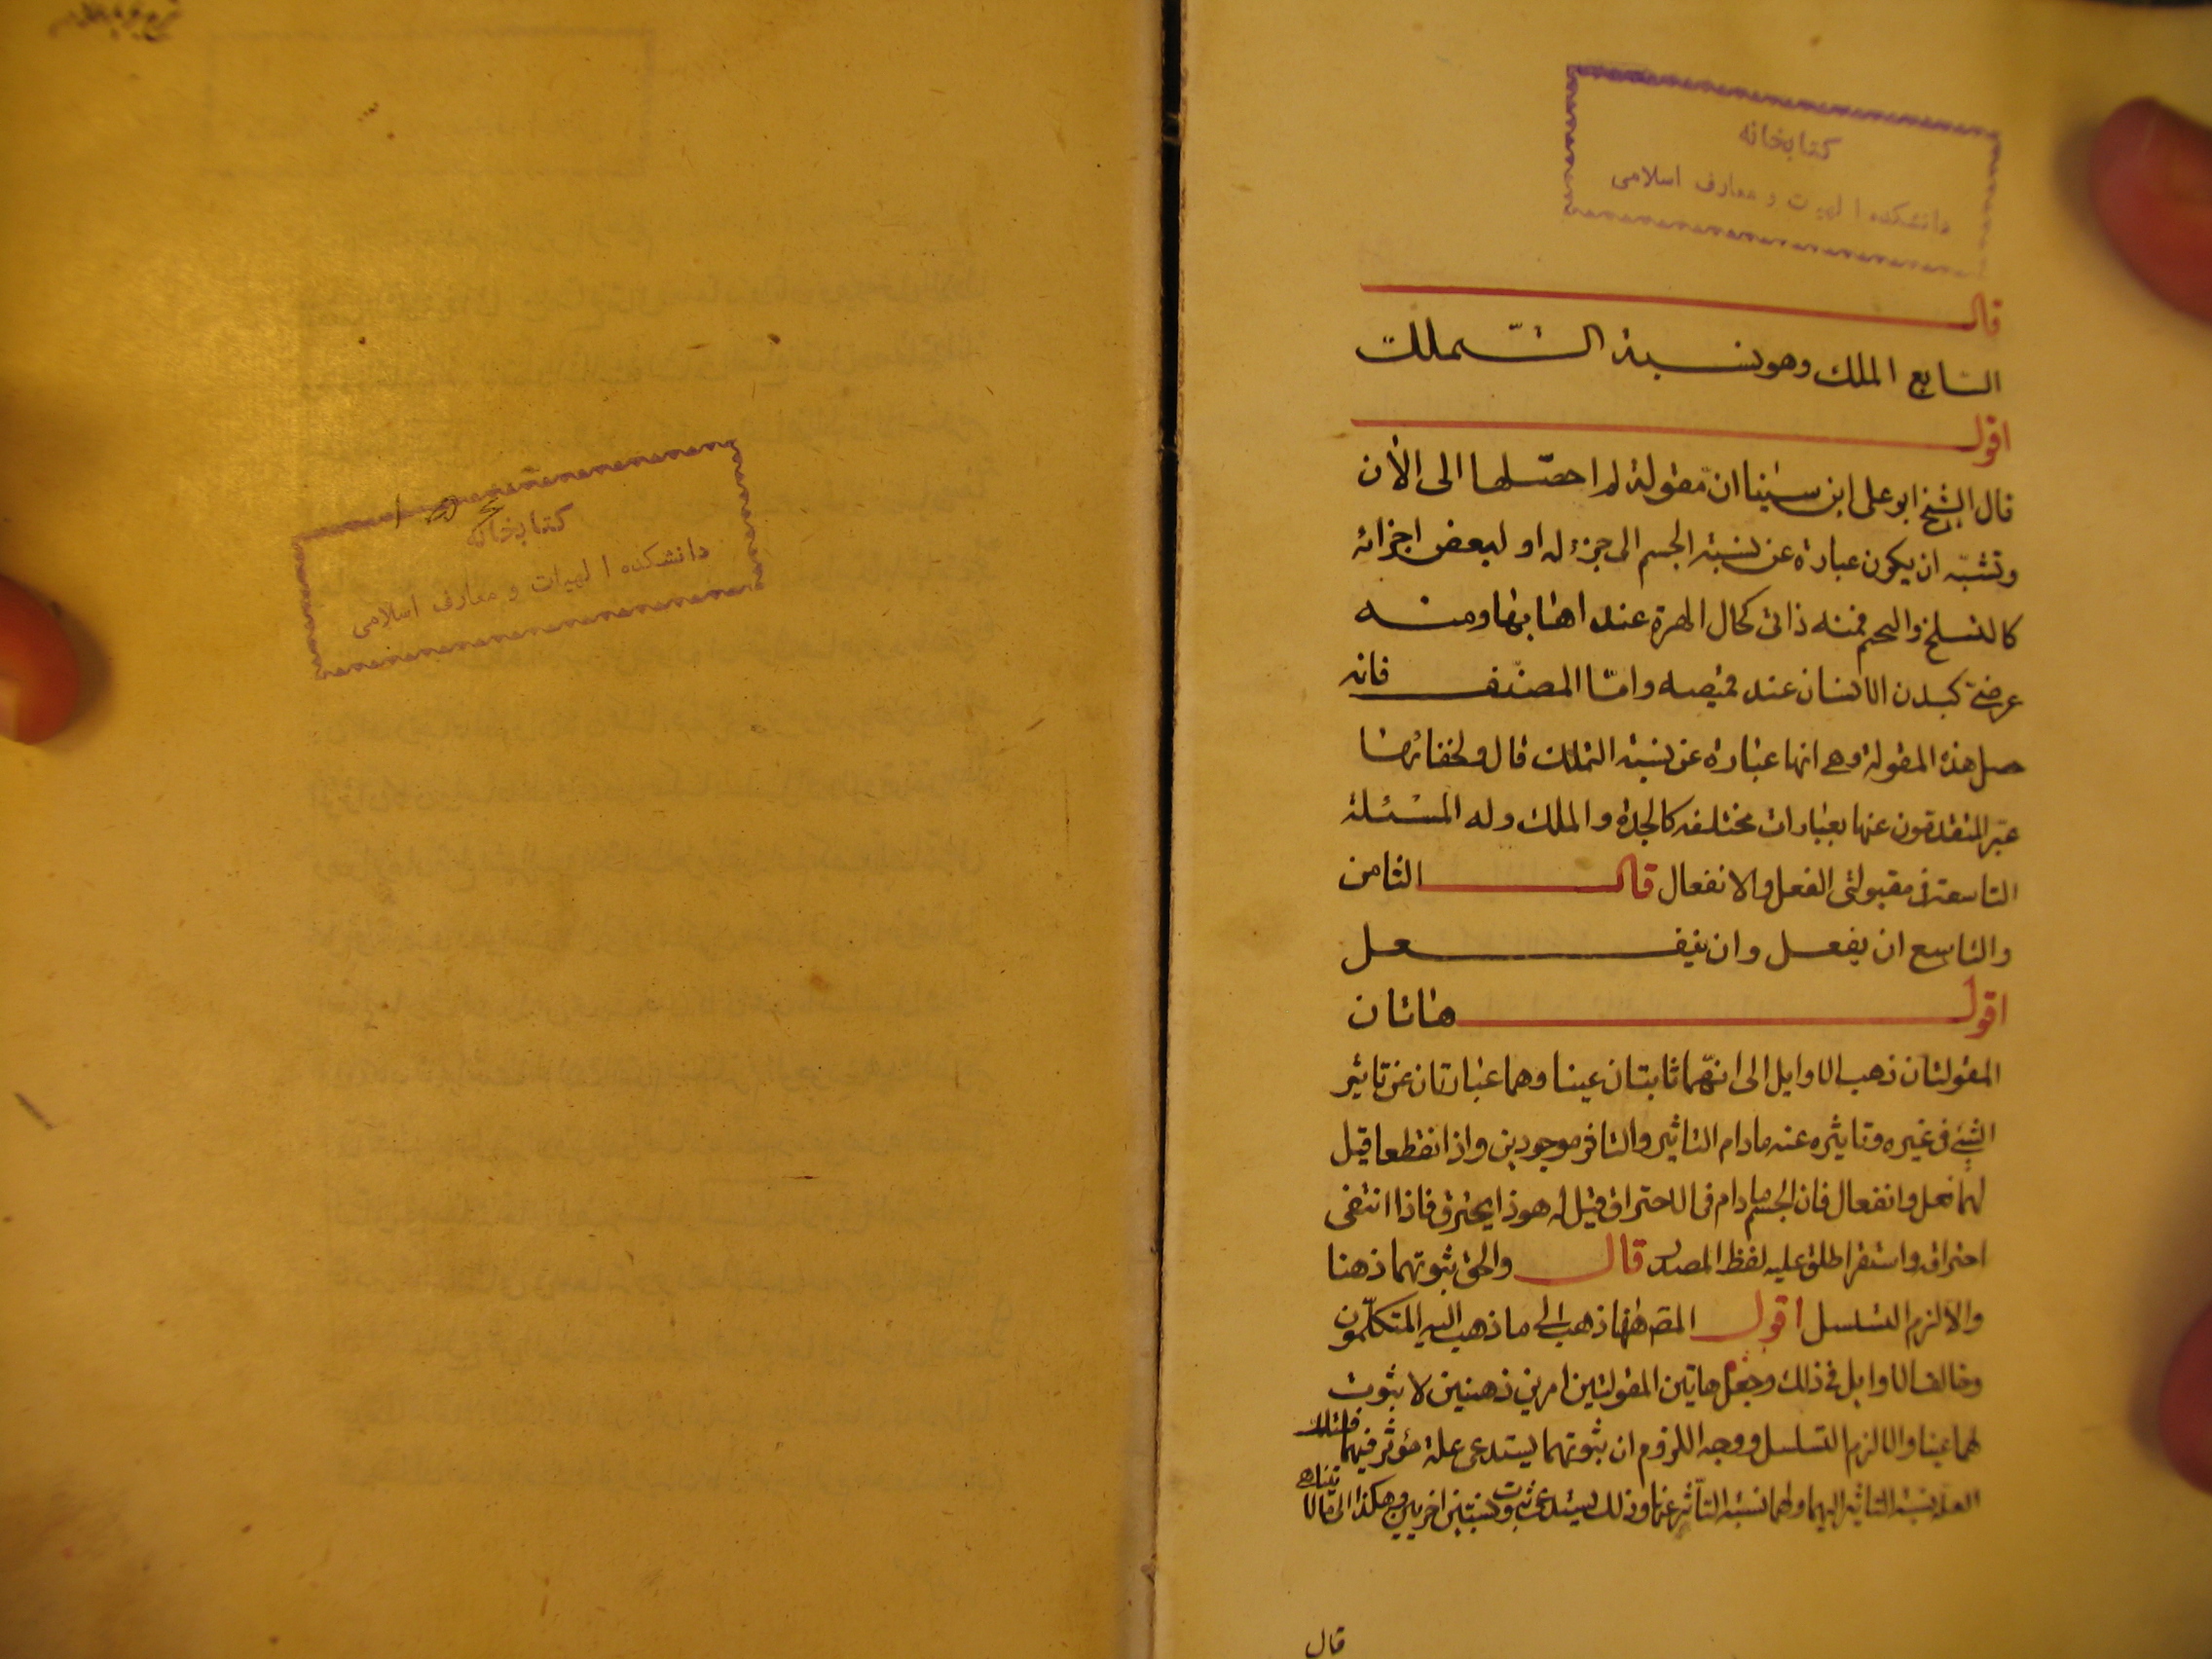 كتابخانه
دانشكده الهيات و معارف اسلامى
قال
السابع الملك وهو نسبة التملك
اقول
قال الشيخ ابو على ابن سينا ان مقولة له احصلها الى الأن
وتشبه ان يكون عبارة عن نسبة الجسم الى جزء له او لبعض اجزائه
كالتسلح والتختم فمنه ذاتى كحال الهرة عند اهابها ومنه
عرضى كبدن الانسان عند قميصه وامّا المصنّف فانه
حصل هذه المقولة وهى انها عبارة عن نسبة التملك قال ولخفائها
عبّر المتقدمون عنها بعبارات مختلفه كالجدة والملك وله المسئلة
التاسعة فى مقبولتى الفعل والانفعال قال الثامن
والتاسع ان يفعل وان ينفعل
اقول هاتان
المقولتان ذهب الاوايل الى انهّما ثابتان عينا وهما عبارتان عن تاثير
الشئ فى غيره وتاثيره عنه مادام التاثير والتاثر موجودين واذا انقطعا قيل
لهما فعل وانفعال فان الجسم مادام فى الاحتراق قيل له هو ذا يحترق فاذا انتفى
احتراقه واستقر اطلق عليه لفظ المصدر قال والحق ثبوتهما ذهنا
والا لزم التسلسل اقول المص هٰهنا ذهب الى ما ذهب اليه المتكلّمون
وخالف الاوايل فى ذلك وجعل هاتين المقولتين امرين ذهنيين لا ثبوت
لهما عينا والا لزم التسلسل ووجه اللزوم ان ثبوتهما يستدعى علة مؤثر فيهما فلتلك
العلة نسبة التاثير اليهما ولهما نسبة التاّثر عنها وذلك يستدعى ثبوت نسبتين اخريين وهكذا الى مالا يتناهى
قال
كتابخانه
دانشكده الهيات و معارف اسلامى